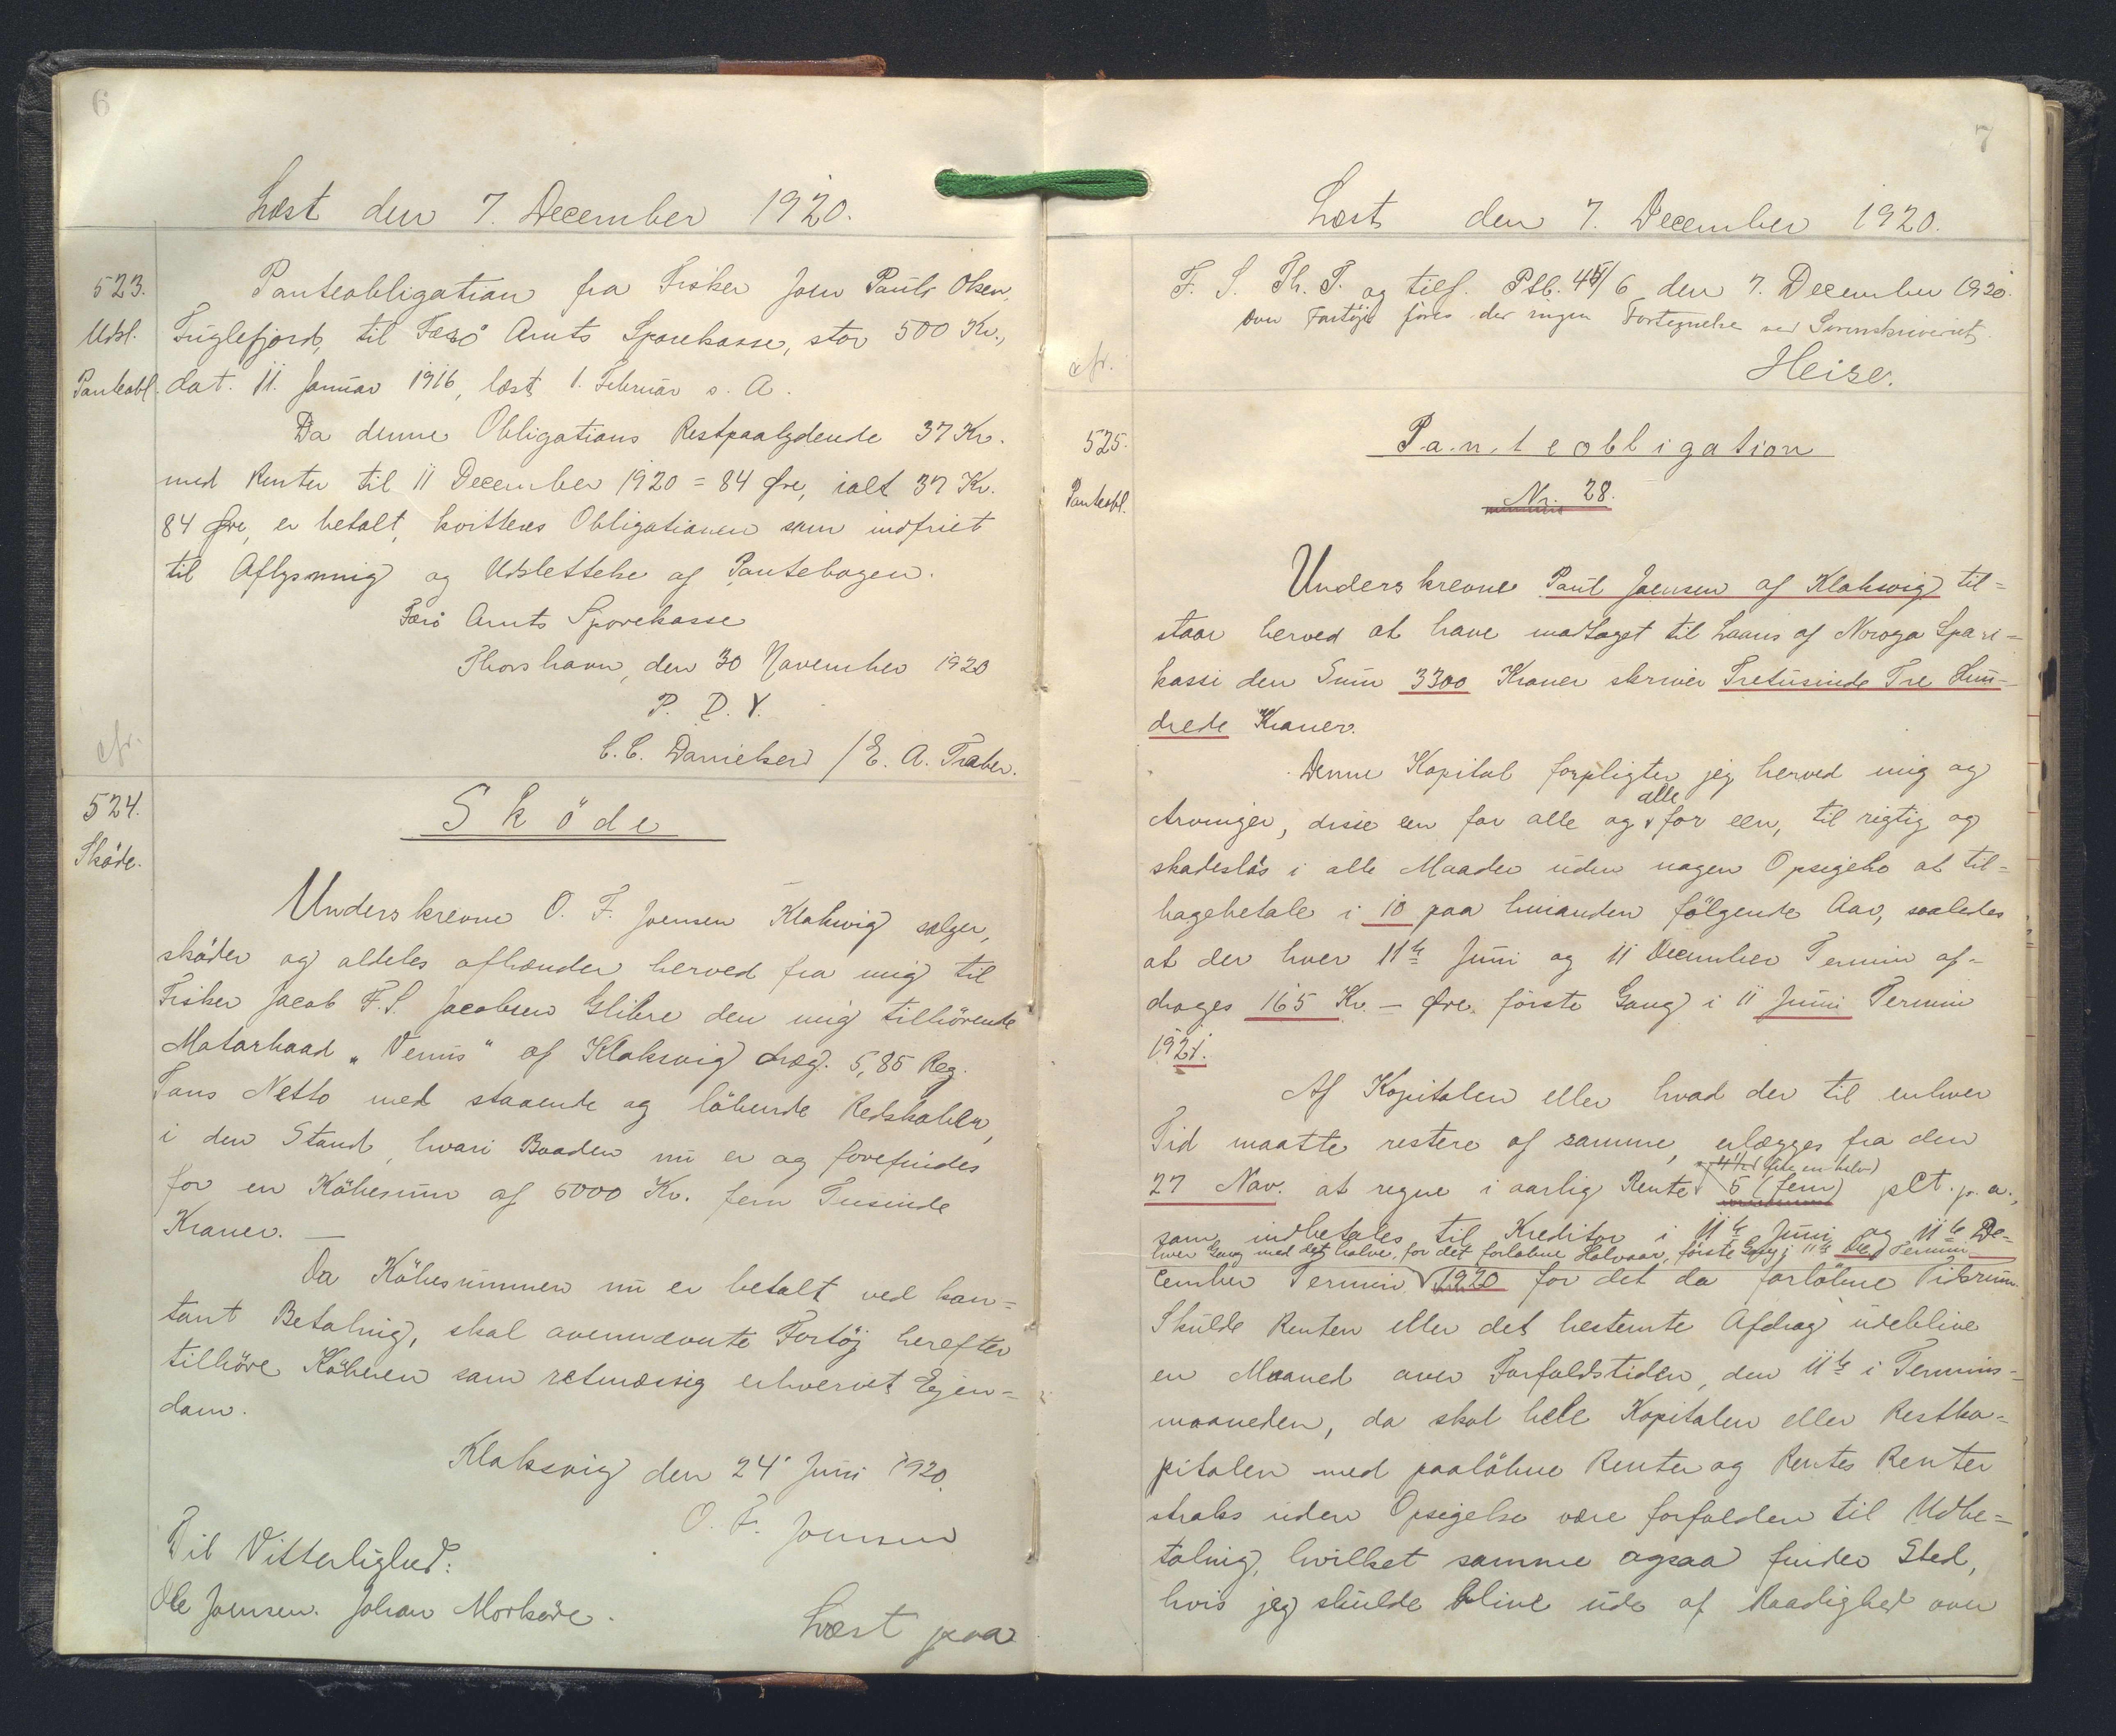 6
Læst den 7. December 1920.
523.
Udsl.
Panteobl.
Panteobligation fra Fisker Joen Pauli Olsen,
Fuglefjord, til Færø Amts Sparekasse, stor 500 Kr.,
dat. 11. Januar 1916, læst 1. Februar s. A.
Da denne Obligations Restpaalydende 37 Kr.
med Renter til 11 December 1920 = 84 Øre, ialt 37 Kr.
84 Øre, er betalt, kvitteres Obligationen som indfriet
til Aflysning og Udslettelse af Pantebogen.
Færö Amts Sparekasse
Thorshavn, den 30 November 1920
P. D. V.
C. C. Danielsen / E. A.
cfr.
524.
Sköde.
Sköde
Underskrevne O. F. Joensen Klaksvig sælger,
sköder og aldeles afhænder herved fra mig til
Fisker Jacob F. S. Jacobsen Glibre den mig tilhörende
Motorbaad „Venus" af Klaksvig dræg. 5,85 Reg.
Tons Netto med staaende og löbende Redskaber,
i den Stand, hvori Baaden nu er og forefindes
for en Köbesum af 5000 Kr. fem Tusinde
Kroner. —
Da Köbesummen nu er betalt ved kon=
tant Betaling, skal ovennævnte Fartöj herefter
tilhöre Köberen som retmæssig erhvervet Ejen=
dom.
Klaksvig den 24' Juni 1920.
O. F. Joensen
Til Vitterlighed:
Ole Joensen. Johan Morköre.
Læst paa
7
Læst den 7. December 1920.
F. S. Th. T. og tilf. Ptb. 45/6 den 7. December 1920.
Over Fartöjer föres der ingen Fortegnelse ved Sorenskriveriet.
Heise.
cfr.
525.
Panteobl.
Panteobligation
Nr. 28.
Underskrevne Paul Joensen af Klaksvig til=
staar herved at have modtaget til Laans af Noroya Spari=
kassi den Sum 3300 Kroner skriver Tretusinde Tre Hun=
drede Kroner.
Denne Kapital forpligter jeg herved mig og
alle
Arvinger, disse een for alle og for een, til rigtig og
skadeslös i alle Maader uden nogen Opsigelse at til=
bagebetale i 10 paa hinanden fölgende Aar, saaledes
at der hver 11te Juni og 11 December Termin af=
drages 165 Kr. — Øre. förste Gang i 11 Juni Termin
1921.
Af Kapitalen eller hvad der til enhver
Tid maatte restere af samme, erlægges fra den
4½ (fire en halv)
27 Nov. at regne i aarlig Rente 5 (fem) pCt. p. a.,
som indbetales til Kreditor i 11te Juni og 11te De=
hver Gang med det halve, for det forløbne Halvaar, förste Gang i 11te Dec. Termin
cember Termin 1920 for det da forløbne Tidsrum.
Skulde Renten eller det bestemte Afdrag udeblive
en Maaned over Forfaldstiden, den 11te i Termins=
maaneden, da skal hele Kapitalen eller Restka=
pitalen med paaløbne Renter og Rentes Renter
straks uden Opsigelse være forfalden til Udbe=
taling, hvilket samme ogsaa finder Sted,
hvis jeg skulde blive ude af Raadighed over